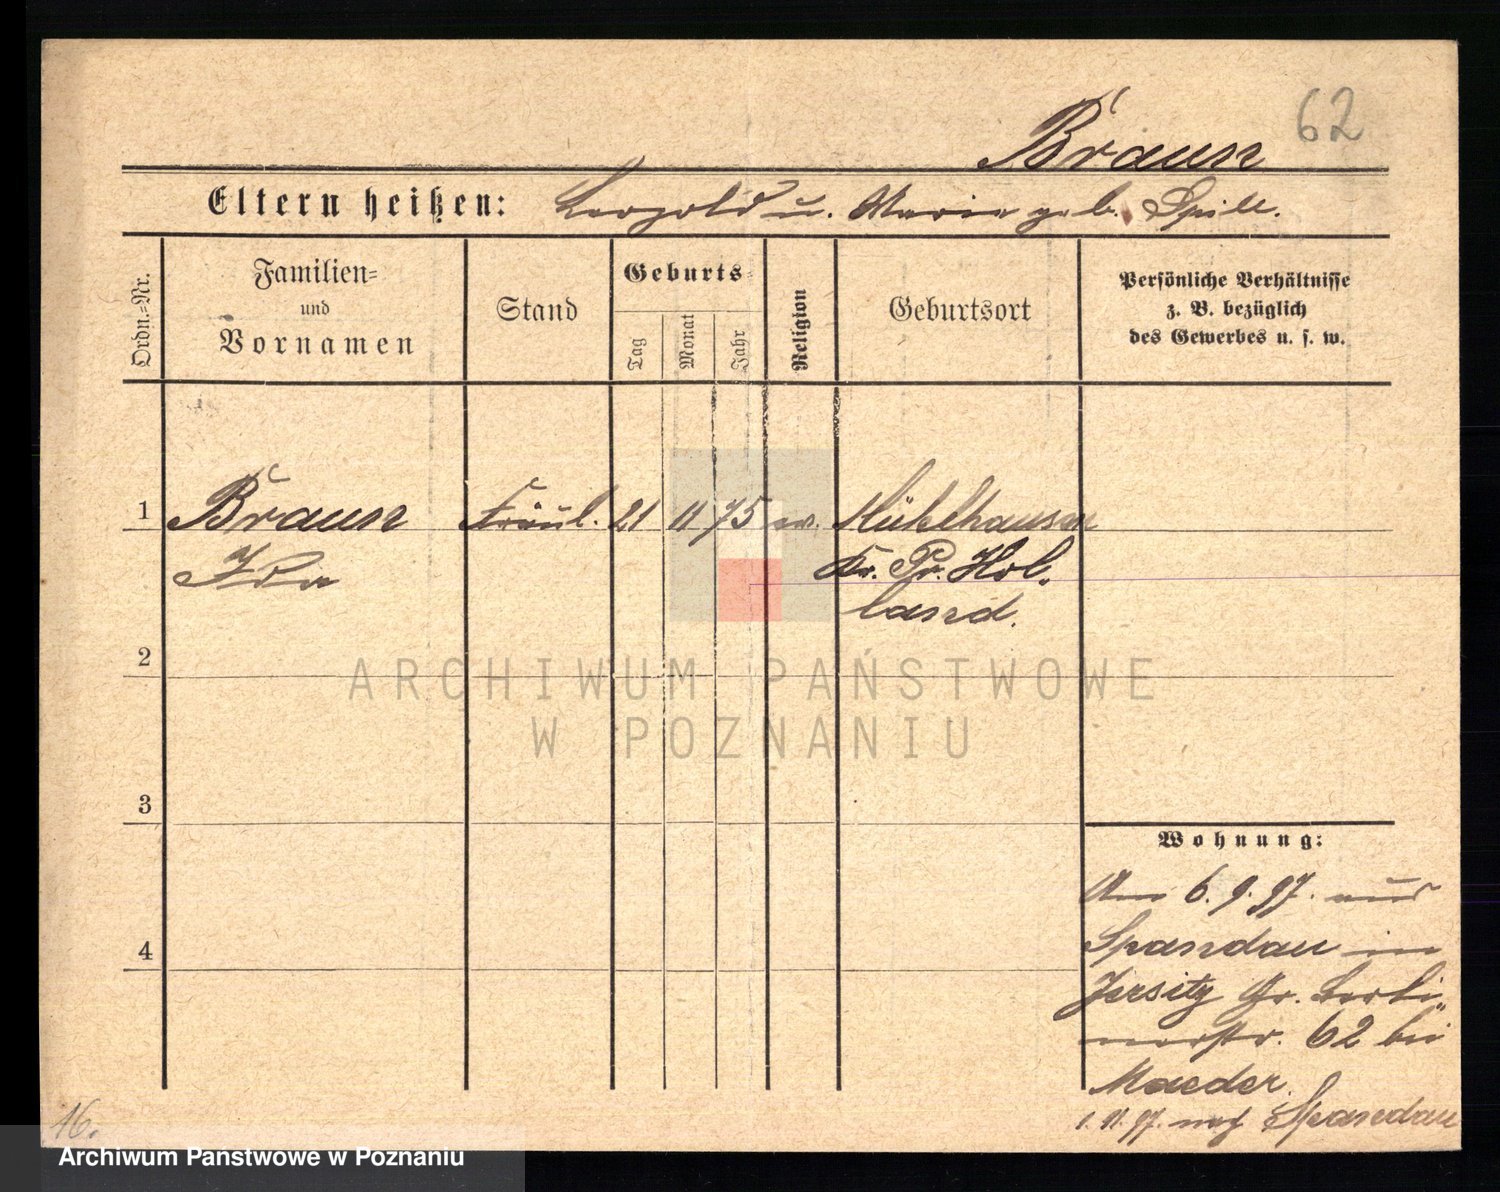 62
Braun
Eltern heißen: Leopold u. Marie geb. Spill.
Ordn.=Nr.
Familien=
und
Vornamen
Stand
Geburts
Tag
Monat
Jahr
Religion
Geburtsort
Persönliche Verhältnisse
z. B. bezüglich
des Gewerbes u. s. w.
1 Braun Fräul. 21 11 75 ev. Mühlhausen
Ida Kr. Pr. Hol-
land.
2
3
4
ARCHIWUM PAŃSTWOWE
W POZNANIU
Wohnung:
Am 6.9.97. aus
Spandau in
Jersitz Gr. Berli-
nerstr. 62 bei
Maeder.
1.11.97. nach Spandau
16.
Archiwum Państwowe w Poznaniu